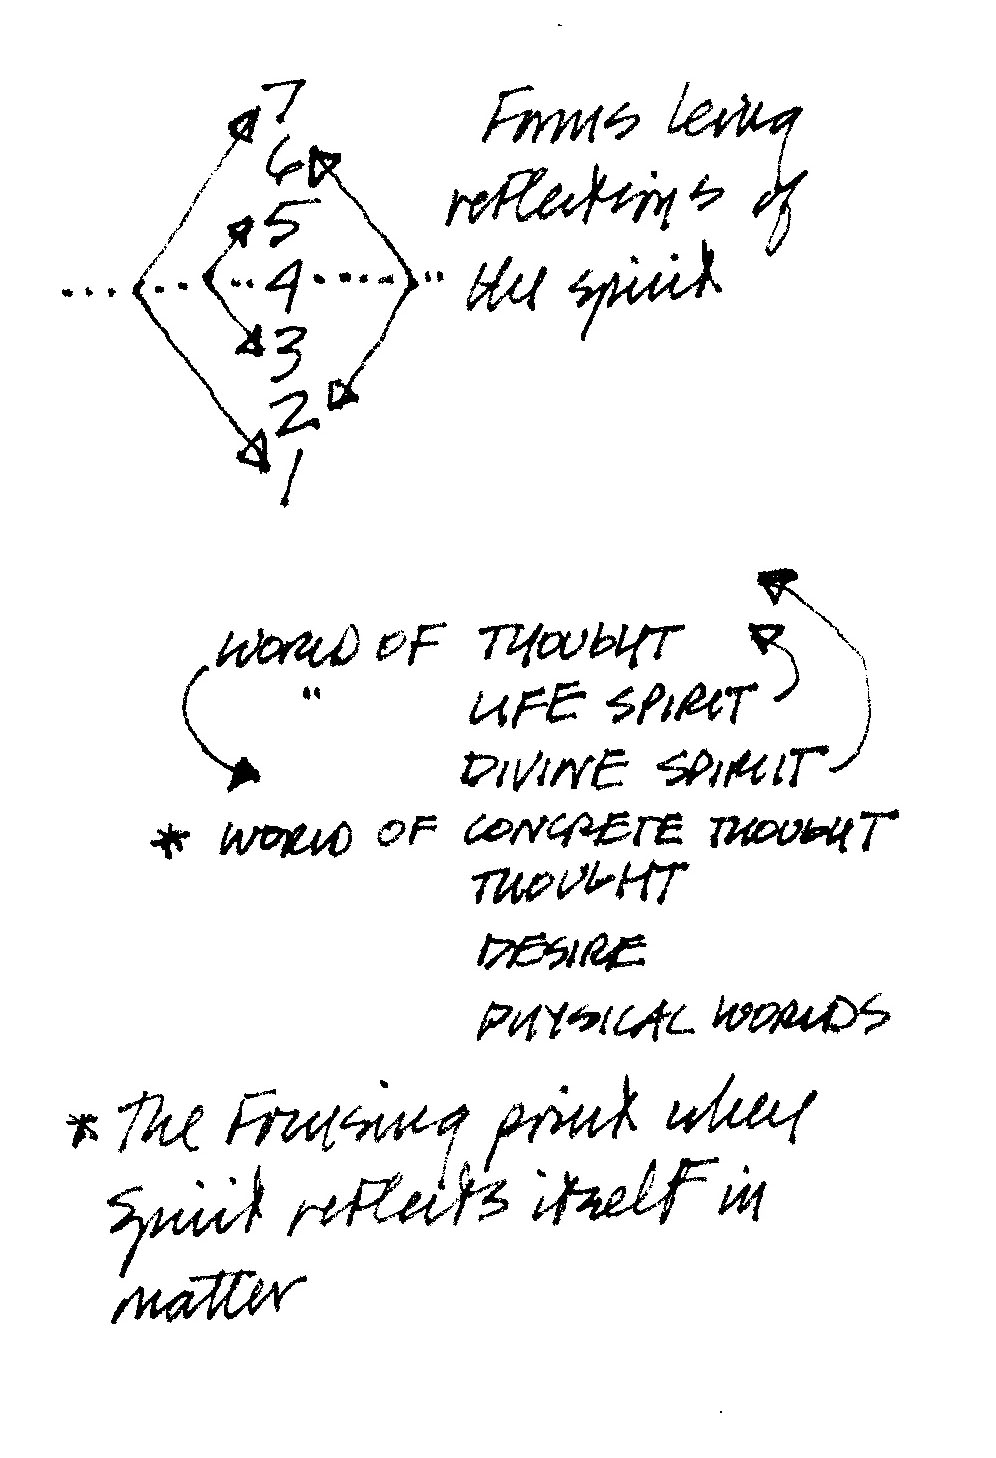 7
6
5
4
3
2
1
Forms being
reflections of
the spirit
WORLD OF THOUGHT
" LIFE SPIRIT
DIVINE SPIRIT
* WORLD OF CONCRETE THOUGHT
THOUGHT
DESIRE
PHYSICAL WORLDS
* The Focusing point where
Spirit reflects itself in
matter